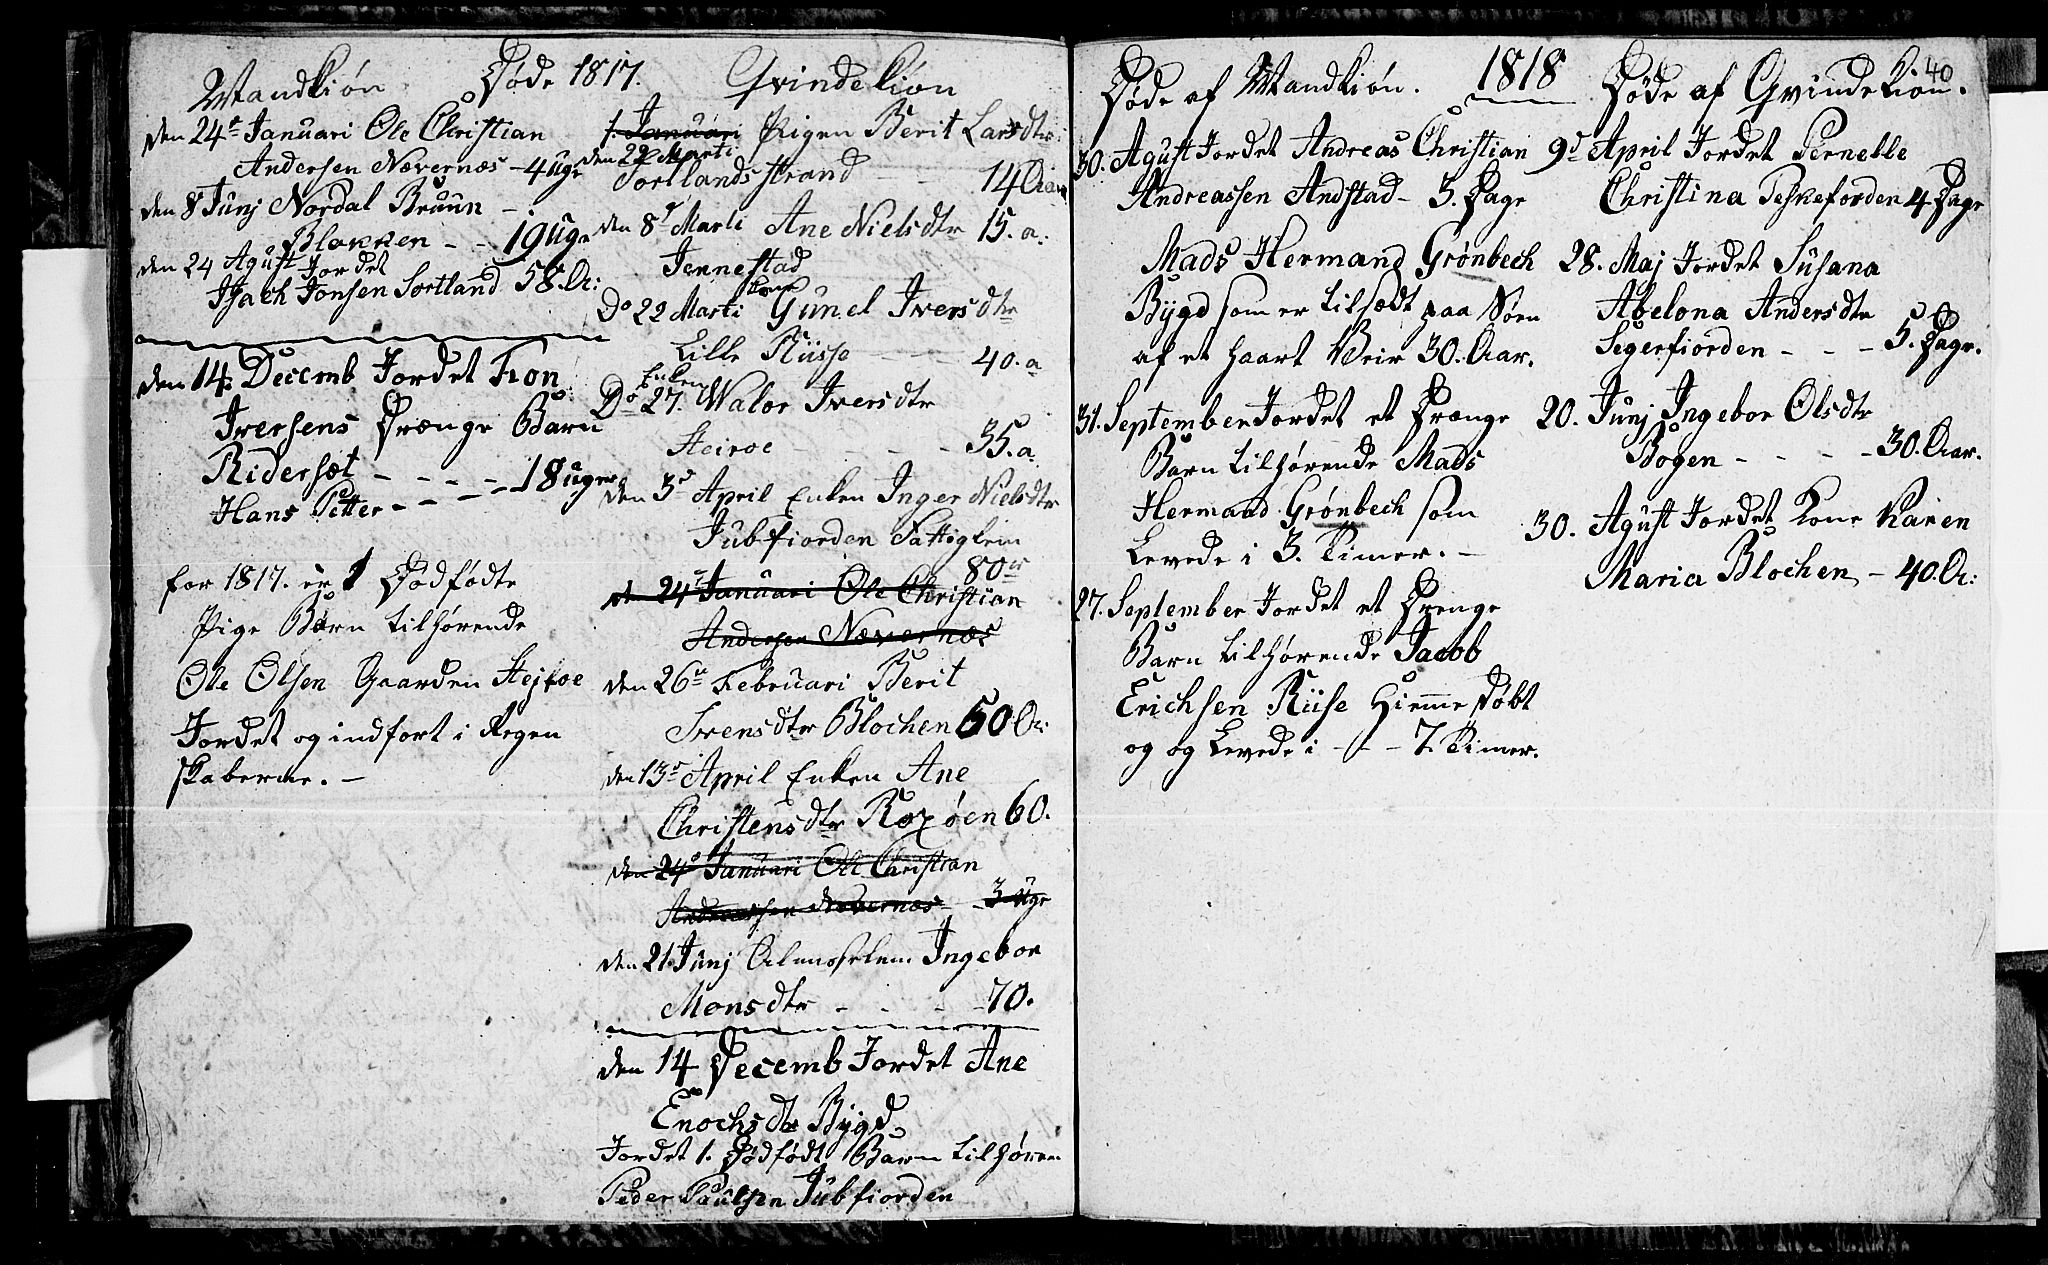 Mandkiøn Døde 1817. Qvindekiøn
den 24de Januari Ole Christian
Andersen Nævernæs - 4 uge
den 8 Junj Nordal Bruun -
Blokken - - 19 uge
den 24 Agust Jordet
Isach Jonsen Sortland 58. A:
den 14. Decemb Jordet
Iversens Drænge Barn
Ridersæt - - - - - 18 uger
Hans Petter - - - -
for 1817. er 1 Dødfødte
Pige Børn tilhørende
Ole Olsen Gaarden Stejroe
Jordet og indfort i Regen
skaberne. -
1. Januari Pigen Berit Larsdtr
den 22 Marti
Sortlandsstrand - - 14 Aar
den 8de Marti Ane Nielsdtr 15. a:
Jennestad
Kone
Do 22 Marti Gunel Iversdtr
Lille Riise - - 40. a
Enken
Do 27. Maler Iversdtr
Steiroe - - - - 35. a.
den 3de April Enken Inger Nielsdtr
Jubfiorden Fattiglem
80
den 24de Januari Ole Christian
Andersen Nævernæs
den 26de Februari Berit
Svensdtr Blochen 60 A:
den 13de April Enken Ane
Christensdtr Roxøen 60.
den 24de Januari Ole Christian
Andreassen Nævernæs - 3 uge
den 21. Junj Almosselem Ingebor
Monsdtr - - - - 70.
den 14 Decemb Jordet Ane
Enochsdtr Bygd
Jordet 1. Dødfødt Barn tilhøren
Peder Paulsen Jubfiorden
40
Døde af Mandkiøn. 1818 Døde af Qvindekiøn.
30. Agust Jordet Andreas Christian
Andreassen Andstad - 3. Dage
Mads Hermand Grønbech
Bygd som er tilsædt paa Søen
af et haart Veir 30. Aar.
31. September Jordet et Drænge
Barn tilhørende Mads
Hermand Grønbech som
Levede i 3. Timer. -
27. September Jordet et Drenge
Barn tilhørende Jacob
Erichsen Riise Hiemme døbt
og og Levede i - - - 7 Timer.
9de April Jordet Pernelle
Christina Reskefiorden 4 Dage
28. Maj Jordet Susana
Abelona Andersdtr
Segerfiorden - - - 5. Dage.
20. Junj Ingebor Olsdtr
Bogen - - - - 30. Aar.
30. Agust Jordet Kone Karen
Maria Blochen - 40. A: